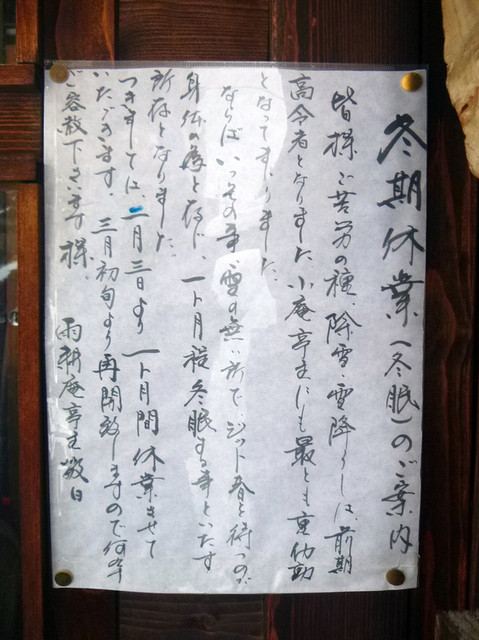 冬期休業(冬眠)のご案内
皆様ご苦労の種、除雪・雪降ろしは、前期
高令者となりました小庵亭主にも最とも重労働
となってまいりました。
ならばいっその事、雪の無い所で、ジット春を待つのが
身体の為と存じ、一ト月程冬眠する事といたす
所存となりました。
つきましては、二月三日より一ト月間休業させて
いただきます。三月初旬より再開致しますので何卒
ご容赦下さいます様。
雨耕庵亭主敬白